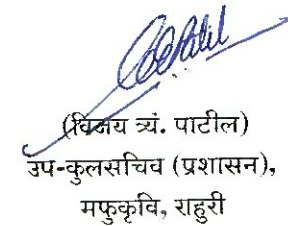 (विजय त्र्यं. पाटील)
उप-कुलसचिव (प्रशासन),
मफुकृवि, राहुरी